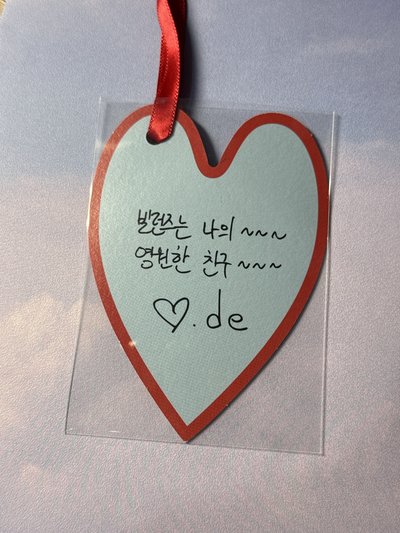 발런주는 나의 ~~~
영원한 친구 ~~~
♡.de